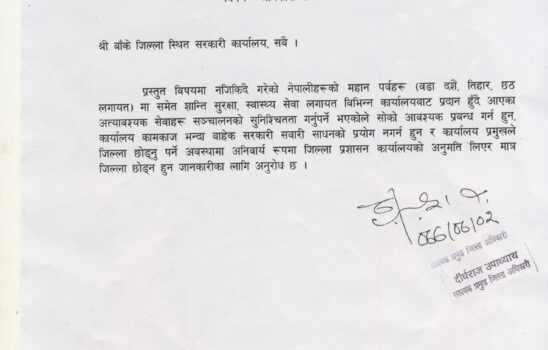 श्री बाँके जिल्ला स्थित सरकारी कार्यालय, सबै ।
प्रस्तुत विषयमा नजिकिदै गरेको नेपालीहरूको महान पर्वहरू (बडा दशै, तिहार, छठ
लगायत) मा समेत शान्ति सुरक्षा, स्वास्थ्य सेवा लगायत विभिन्न कार्यालयबाट प्रदान हुँदै आएका
अत्यावश्यक सेवाहरू सञ्चालनको सुनिश्चितता गर्नुपर्ने भएकोले सोको आवश्यक प्रबन्ध गर्न हुन,
कार्यालय कामकाज भन्दा बाहेक सरकारी सवारी साधनको प्रयोग नगर्न हुन र कार्यालय प्रमुखले
जिल्ला छोड्नु पर्ने अवस्थामा अनिवार्य रूपमा जिल्ला प्रशासन कार्यालयको अनुमति लिएर मात्र
जिल्ला छोड्न हुन जानकारीका लागि अनुरोध छ ।
सहायक प्रमुख जिल्ला अधिकारी
दीर्घराज उपाध्याय
सहायक प्रमुख जिल्ला अधिकारी